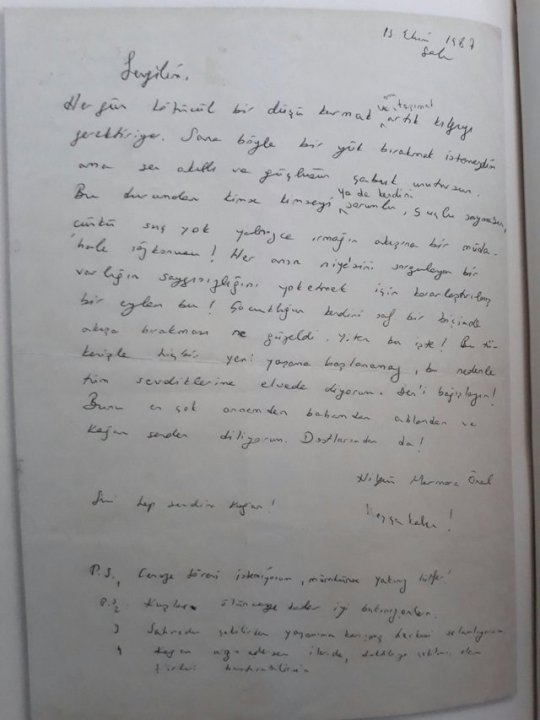 13 Ekim 1987
Salı
Sevgilim,
Her gün kötücül bir düşü kurmak ve taşımak artık kılgıyı
gerektiriyor. Sana böyle bir yük bırakmak istemezdim
ama sen akıllı ve güçlüsün çabuk unutursun.
Bu durumdan kimse kimseyi ya da kendini sorumlu, suçlu saymasın,
çünkü suç yok yalnızca ırmağın akışına bir müda-
hale sözkonusu! Her anın niye'sini sorgulayan bir
varlığın saygısızlığını yoketmek için kararlaştırılmış
bir eylem bu! Çocukluğun kendini saf bir biçimde
akışa bırakması ne güzeldi. Yiten bu işte! Bu tü-
kenişle hiçbir yeni yaşama başlanamaz, bu nedenle
tüm sevdiklerime elveda diyorum. Ben'i bağışlayın!
Bunu en çok annemden babamdan ablamdan ve
Kağan senden diliyorum. Dostlarımdan da!
Nilgün Marmara Önal
Seni hep sevdim Kağan!
Hoşçakalın!
P.S.1 Cenaze töreni istemiyorum, mümkünse yakınız lütfen!
P.S.2 Kuşlara ölünceye kadar iyi bakınız
3 Sahneden çekilirken yaşamıma karışmış herkesi selamlıyorum
4 Kağan arzu edersen ileride, daktiloya çekilmiş olan